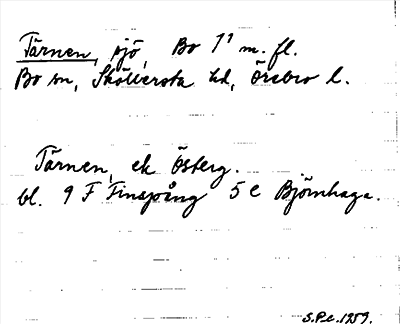 Tärnen, sjö, Bo 1¹ m. fl.
Bo sn, Sköllersta hd, Örebro l.
Tärnen, ek Österg.
bl. 9 F Finspång 5 c Björnhaga.
S.P.c. 1959.